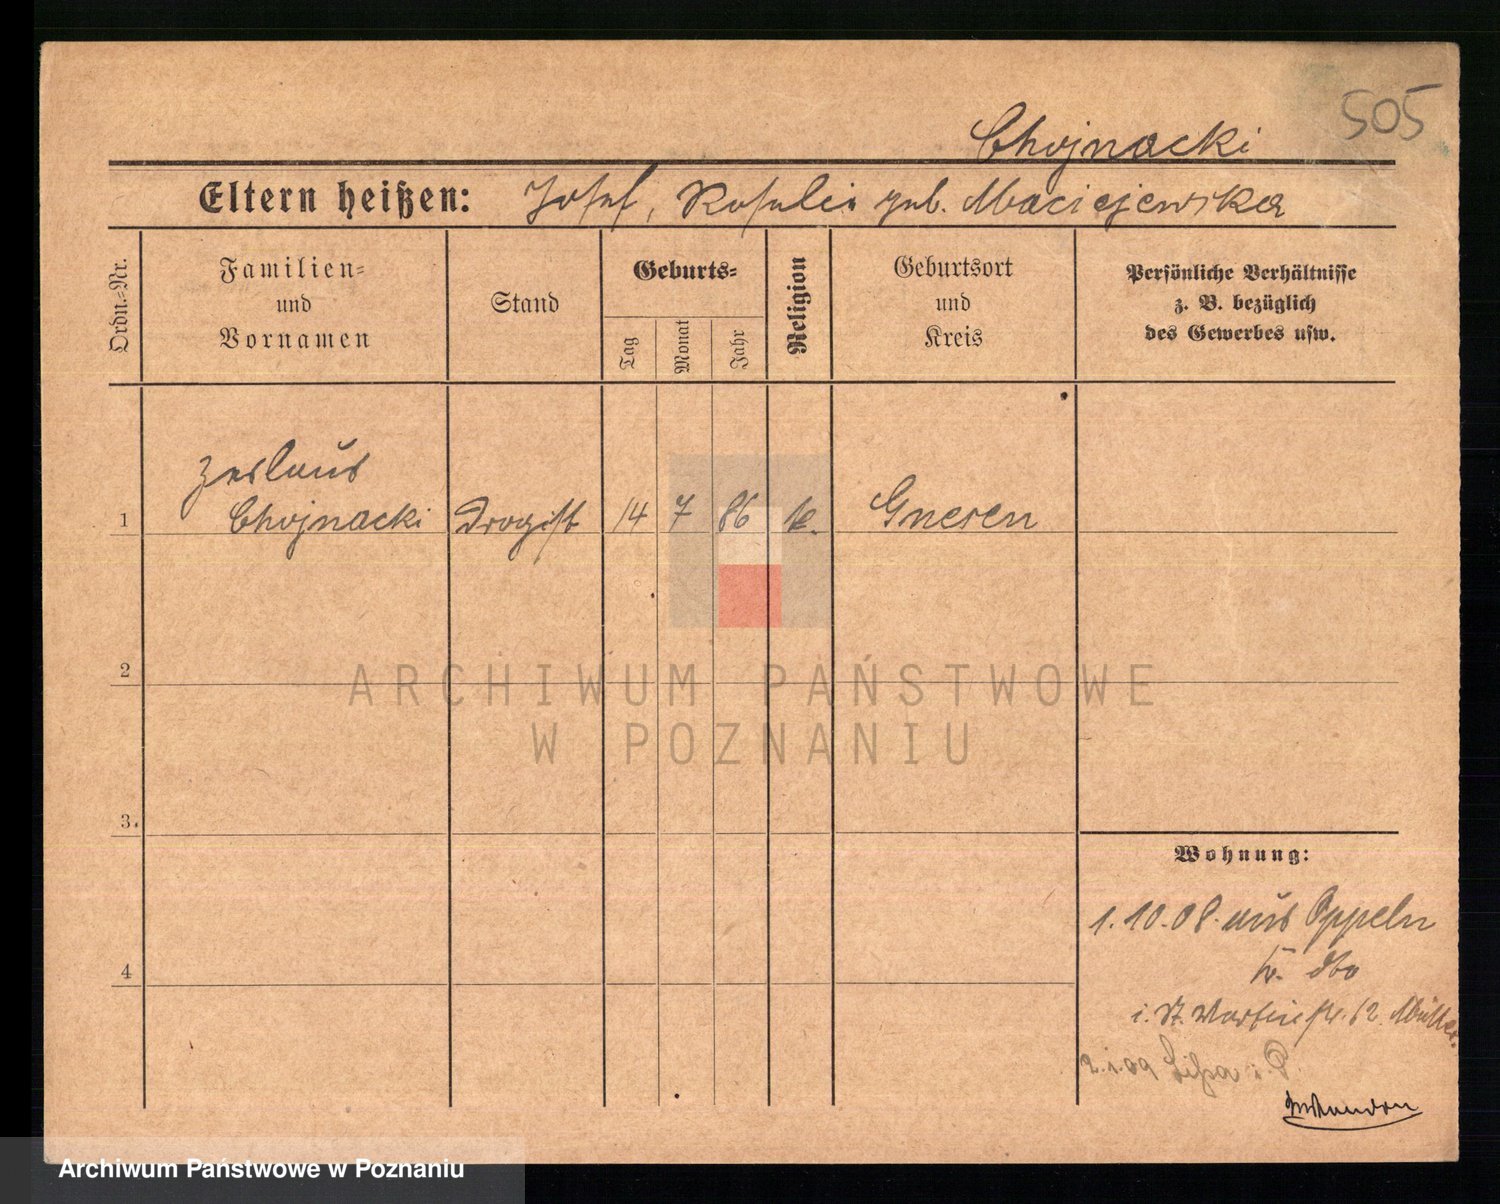 505
Chojnacki
Eltern heißen: Josef, Rosalie geb. Maciejewska
Ordn.-Nr.
Familien-
und
Vornamen
Stand
Geburts-
Tag
Monat
Jahr
Religion
Geburtsort
und
Kreis
Persönliche Verhältnisse
z. B. bezüglich
des Gewerbes usw.
Zeslaus
1 Chojnacki Drogist 14 7 86 k. Gnesen
2
ARCHIWUM PAŃSTWOWE
W POZNANIU
3.
Wohnung:
1.10.08. aus Oppeln
dto
4
i. St. Martinstr. 62. Müller.
2.1.09 Lissa i. P.
Archiwum Państwowe w Poznaniu